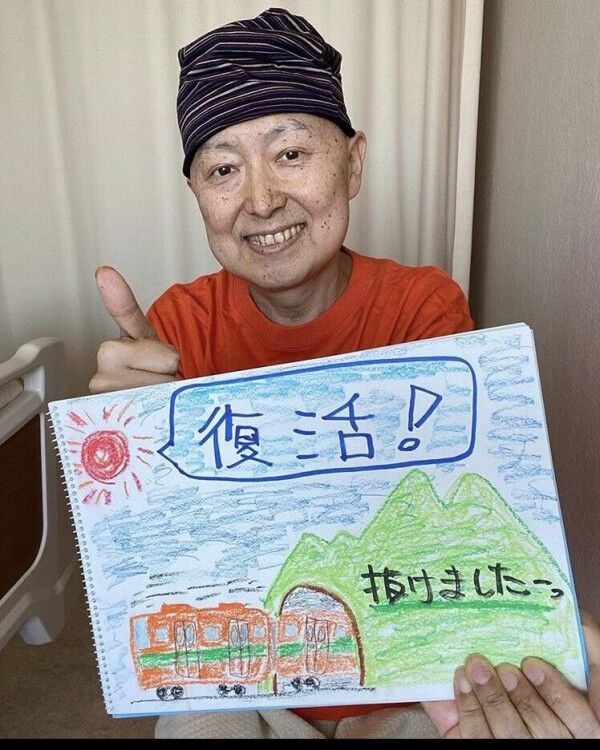 復活！
抜けましたーっ